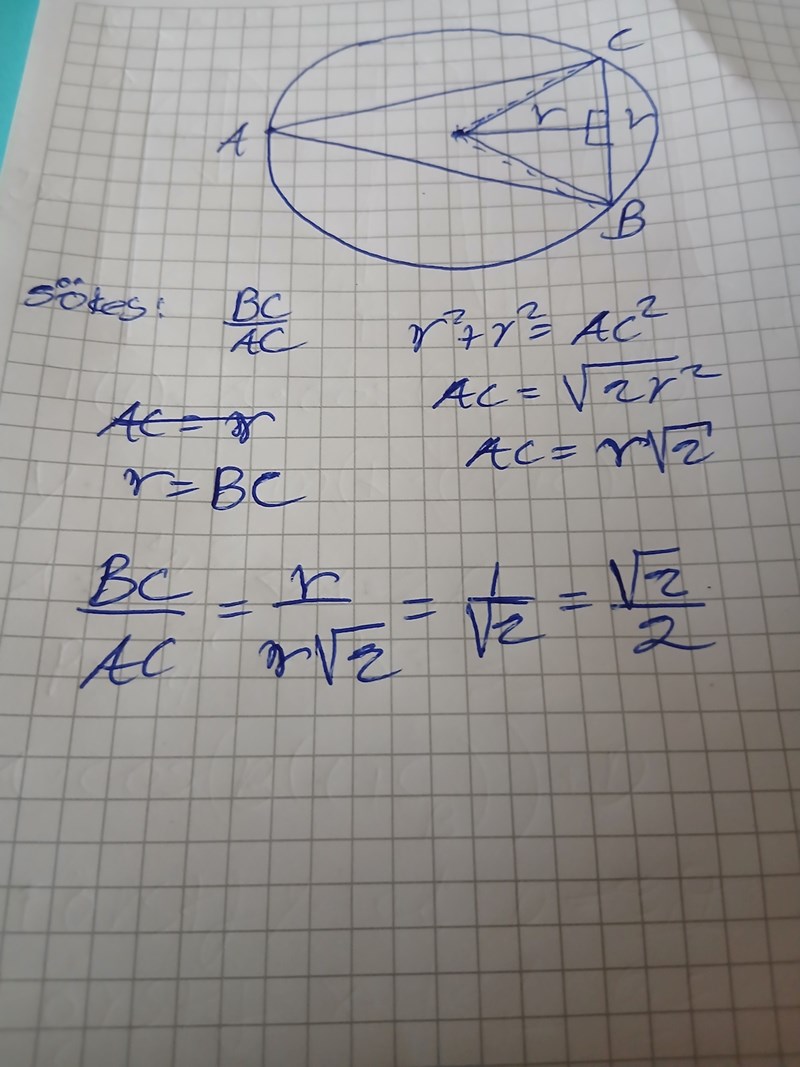 C
A
r
r
B
Sökes: BC/AC
r² + r² = AC²
AC = √2r²
A̶C̶ ̶=̶ ̶r̶
AC = r√2
r = BC
BC/AC = r/r√2 = 1/√2 = √2/2